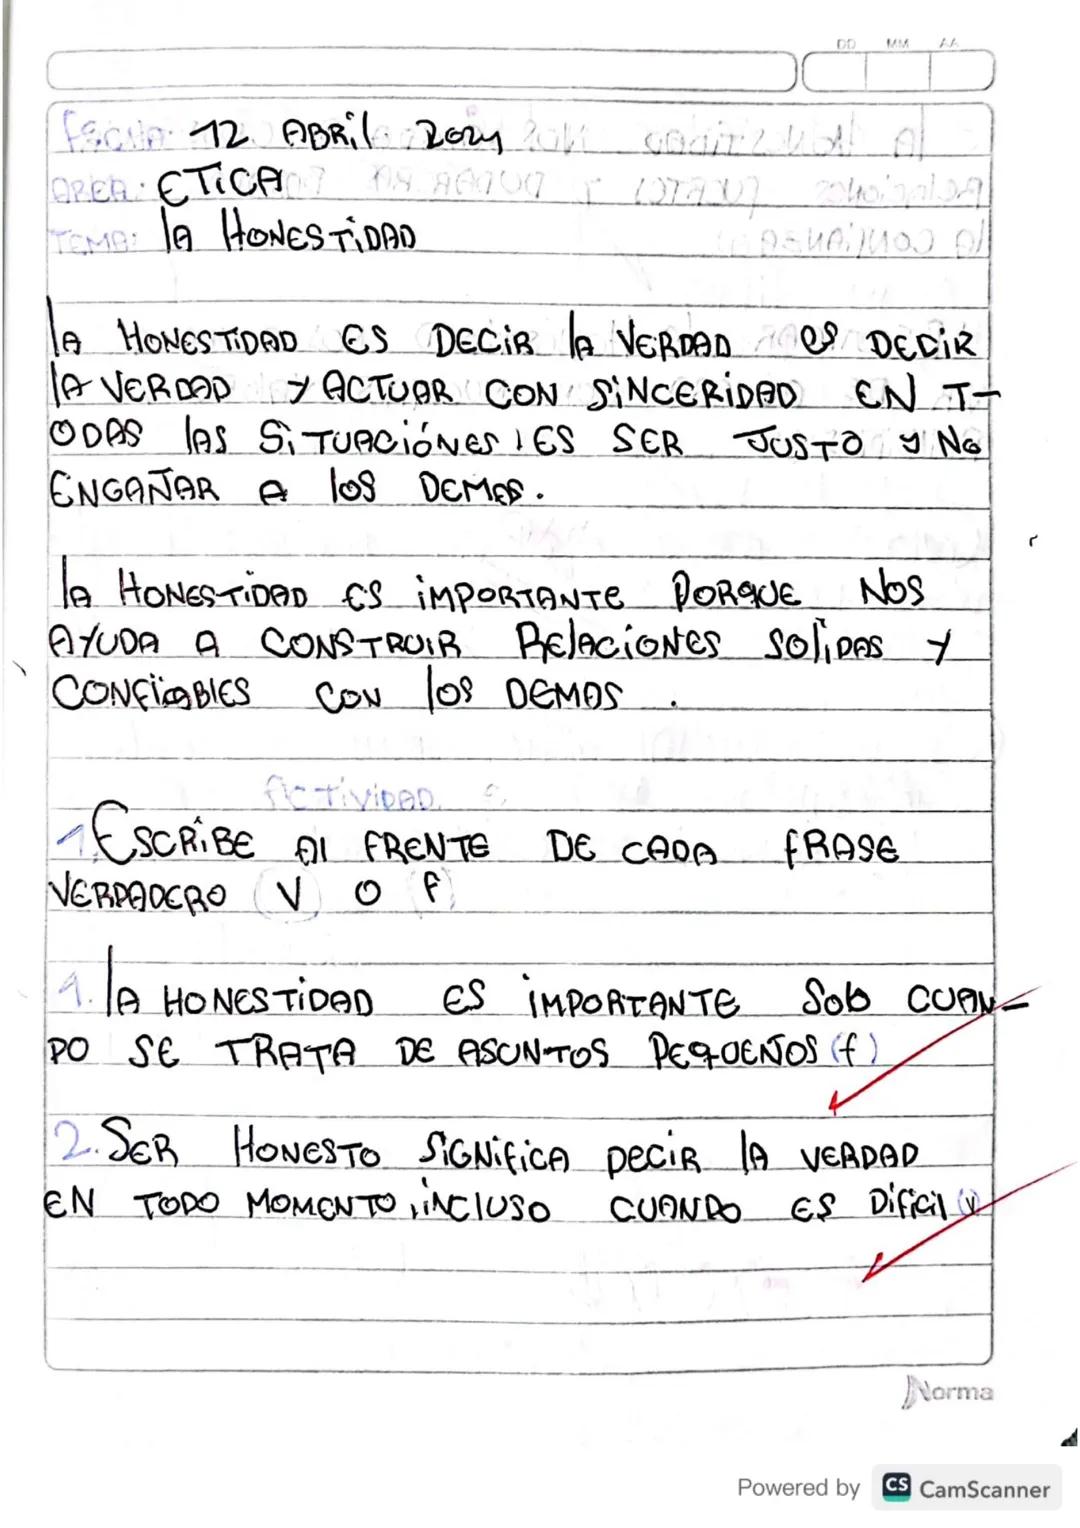 DD MM AA
FECHA: 12 ABRil 2024
AREA: ETiCA
TEMA: lA HONESTiDAD
lA HONESTIDAD ES DECiR lA VERDAD es DECiR
lA VERDAD Y ACTUAR CON SiNCERiDAD EN T-
ODAS lAS SiTUACiÓNES, ES SER JUSTO y NO
ENGAÑAR A lOS DEMAS.
lA HONESTiDAD ES iMPORTANTE PORQUE NOS
AYUDA A CONSTRUiR RElACiONES SOliDAS Y
CONFiABlES CON lOS DEMAS.
ACTiViDAD.
1. ESCRiBE Al FRENTE DE CADA FRASE
VERDADERO (V) O (F)
1. lA HONESTiDAD ES iMPORTANTE Solo CUAN-
DO SE TRATA DE ASUNTOS PEQUEÑOS (f)
2. SER HONESTO SiGNiFiCA DECiR lA VERDAD
EN TODO MOMENTO, iNCLUSO CUANDO ES DiFiCil (V)
Norma
Powered by CS CamScanner